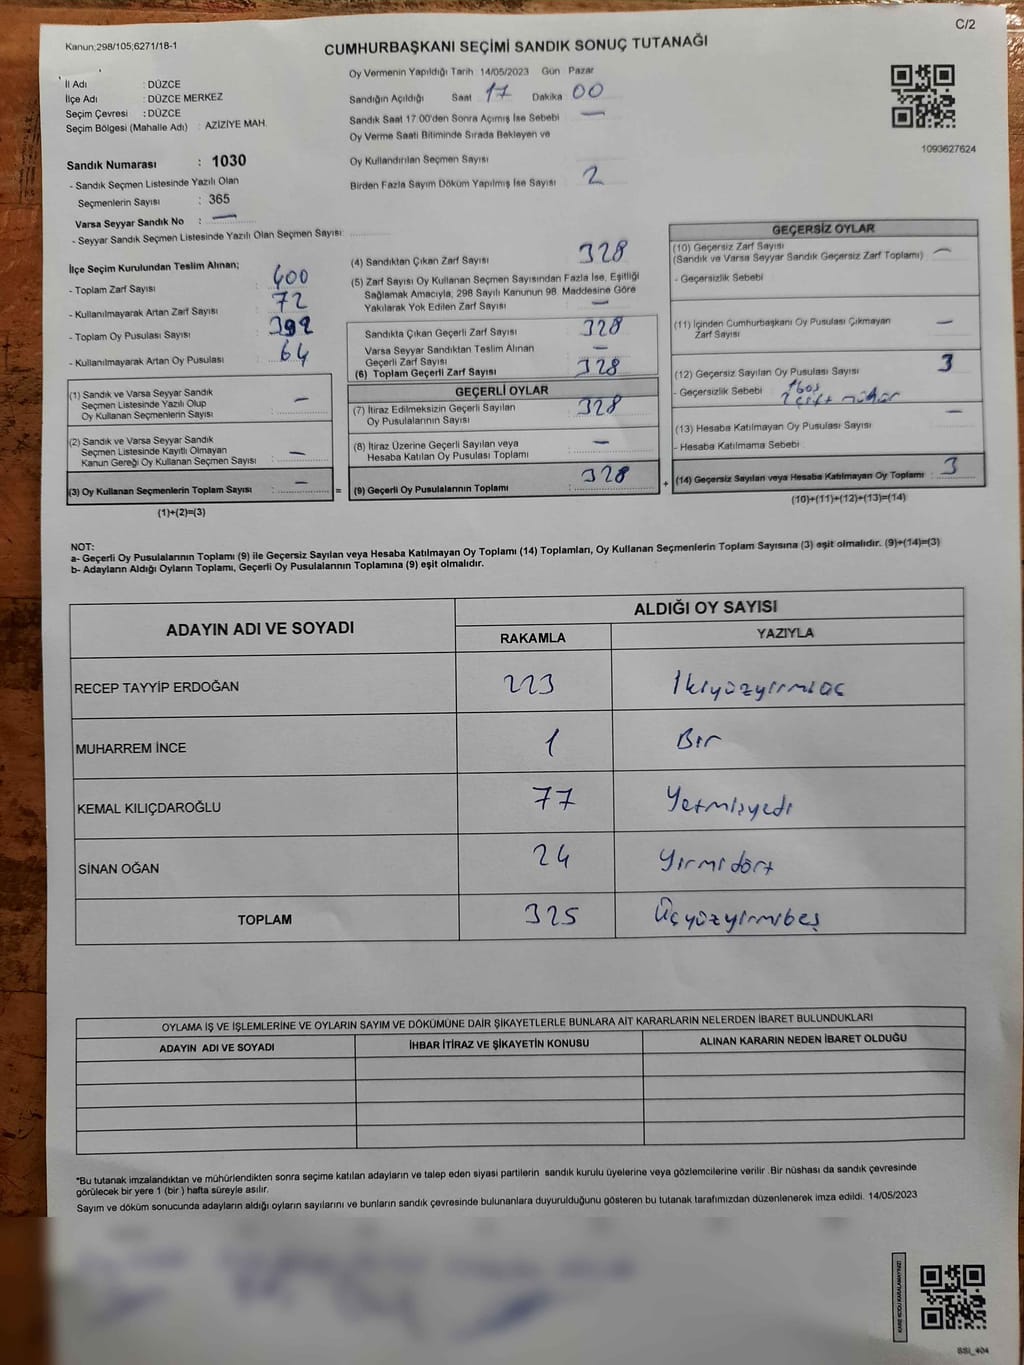 C/2
Kanun;298/105;6271/18-1
CUMHURBAŞKANI SEÇİMİ SANDIK SONUÇ TUTANAĞI
İl Adı : DÜZCE
İlçe Adı : DÜZCE MERKEZ
Seçim Çevresi : DÜZCE
Seçim Bölgesi (Mahalle Adı) : AZİZİYE MAH.
Sandık Numarası : 1030
- Sandık Seçmen Listesinde Yazılı Olan
Seçmenlerin Sayısı : 365
Varsa Seyyar Sandık No : —
- Seyyar Sandık Seçmen Listesinde Yazılı Olan Seçmen Sayısı:
Oy Vermenin Yapıldığı Tarih 14/05/2023 Gün Pazar
Sandığın Açıldığı Saat 17 Dakika 00
Sandık Saat 17:00'den Sonra Açımış İse Sebebi —
Oy Verme Saati Bitiminde Sırada Bekleyen ve
Oy Kullandırılan Seçmen Sayısı
Birden Fazla Sayım Döküm Yapılmış İse Sayısı 2
1093627624
İlçe Seçim Kurulundan Teslim Alınan;
- Toplam Zarf Sayısı : 400
- Kullanılmayarak Artan Zarf Sayısı : 72
- Toplam Oy Pusulası Sayısı : 392
- Kullanılmayarak Artan Oy Pusulası : 64
(1) Sandık ve Varsa Seyyar Sandık
Seçmen Listesinde Yazılı Olup
Oy Kullanan Seçmenlerin Sayısı : —
(2) Sandık ve Varsa Seyyar Sandık
Seçmen Listesinde Kayıtlı Olmayan
Kanun Gereği Oy Kullanan Seçmen Sayısı : —
(3) Oy Kullanan Seçmenlerin Toplam Sayısı : —
(1)+(2)=(3)
=
(4) Sandıktan Çıkan Zarf Sayısı 328
(5) Zarf Sayısı Oy Kullanan Seçmen Sayısından Fazla İse, Eşitliği
Sağlamak Amacıyla, 298 Sayılı Kanunun 98. Maddesine Göre
Yakılarak Yok Edilen Zarf Sayısı —
Sandıkta Çıkan Geçerli Zarf Sayısı 328
Varsa Seyyar Sandıktan Teslim Alınan
Geçerli Zarf Sayısı —
(6) Toplam Geçerli Zarf Sayısı 328
GEÇERLİ OYLAR
(7) İtiraz Edilmeksizin Geçerli Sayılan
Oy Pusulasının Sayısı 328
(8) İtiraz Üzerine Geçerli Sayılan veya
Hesaba Katılan Oy Pusulası Toplamı —
(9) Geçerli Oy Pusulalarının Toplamı : 328
+
GEÇERSİZ OYLAR
(10) Geçersiz Zarf Sayısı
(Sandık ve Varsa Seyyar Sandık Geçersiz Zarf Toplamı) —
- Geçersizlik Sebebi
(11) İçinden Cumhurbaşkanı Oy Pusulası Çıkmayan
Zarf Sayısı —
(12) Geçersiz Sayılan Oy Pusulası Sayısı 3
- Geçersizlik Sebebi 1 boş
2 çift mühür
(13) Hesaba Katılmayan Oy Pusulası Sayısı —
- Hesaba Katılmama Sebebi
(14) Geçersiz Sayılan veya Hesaba Katılmayan Oy Toplamı : 3
(10)+(11)+(12)+(13)=(14)
NOT:
a- Geçerli Oy Pusulalarının Toplamı (9) ile Geçersiz Sayılan veya Hesaba Katılmayan Oy Toplamı (14) Toplamları, Oy Kullanan Seçmenlerin Toplam Sayısına (3) eşit olmalıdır. (9)+(14)=(3)
b- Adayların Aldığı Oyların Toplamı, Geçerli Oy Pusulalarının Toplamına (9) eşit olmalıdır.
ADAYIN ADI VE SOYADI
ALDIĞI OY SAYISI
RAKAMLA YAZIYLA
RECEP TAYYİP ERDOĞAN 223 İkiyüzyirmiüç
MUHARREM İNCE 1 Bir
KEMAL KILIÇDAROĞLU 77 Yetmişyedi
SİNAN OĞAN 24 Yirmidört
TOPLAM 325 Üçyüzyirmibeş
OYLAMA İŞ VE İŞLEMLERİNE VE OYLARIN SAYIM VE DÖKÜMÜNE DAİR ŞİKAYETLERLE BUNLARA AİT KARARLARIN NELERDEN İBARET BULUNDUKLARI
ADAYIN ADI VE SOYADI İHBAR İTİRAZ VE ŞİKAYETİN KONUSU ALINAN KARARIN NEDEN İBARET OLDUĞU
*Bu tutanak imzalandıktan ve mühürlendikten sonra seçime katılan adayların ve talep eden siyasi partilerin sandık kurulu üyelerine veya gözlemcilerine verilir .Bir nüshası da sandık çevresinde
görülecek bir yere 1 (bir ) hafta süreyle asılır.
Sayım ve döküm sonucunda adayların aldığı oyların sayılarını ve bunların sandık çevresinde bulunanlara duyurulduğunu gösteren bu tutanak tarafımızdan düzenlenerek imza edildi. 14/05/2023
KARE KODU KARALAMAYINIZ!
SSI_404